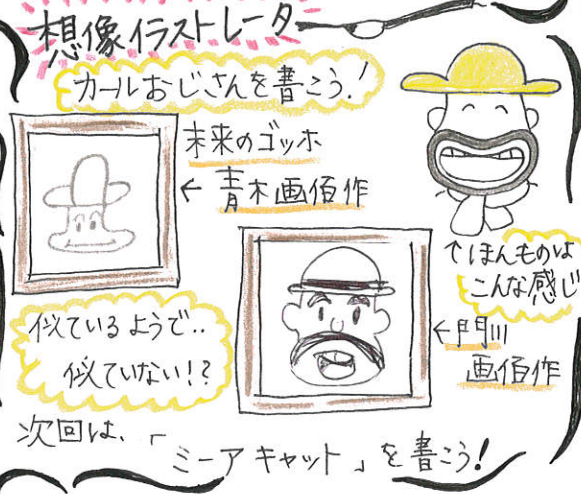 想像イラストレーター
カールおじさんを書こう!
未来のゴッホ
← 青木画伯作
↑ほんものは
こんな感じ
←門川
画伯作
似ているようで..
似ていない!?
次回は、「
ミーアキャット」を書こう!